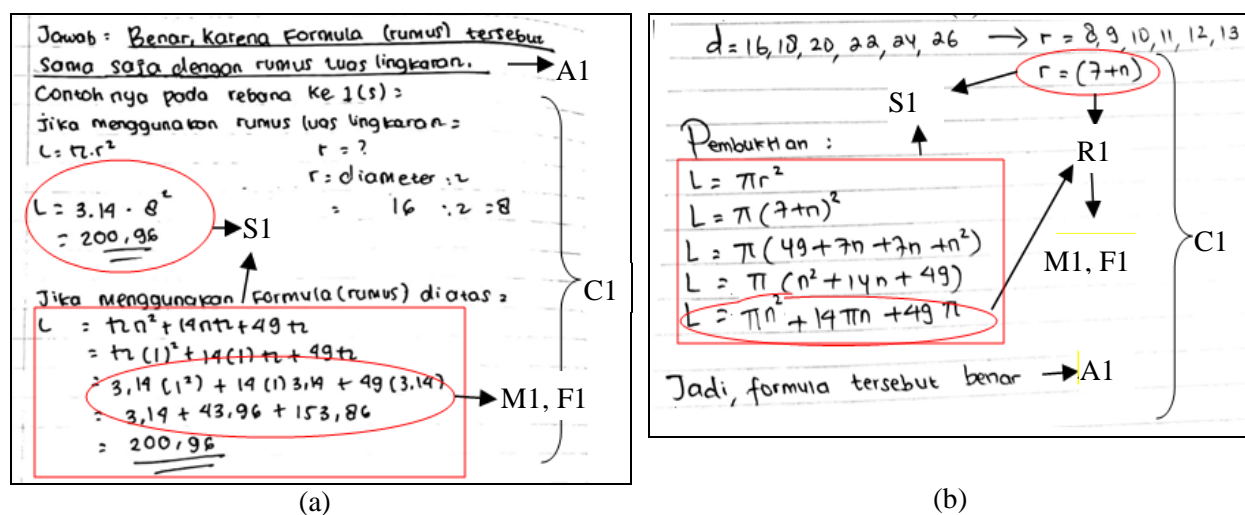 Jawab : Benar, Karena Formula (rumus) tersebut
sama saja dengan rumus luas lingkaran.
A1
Contohnya pada rebana ke 1(s) :
Jika menggunakan rumus luas lingkaran =
L = π.r²
r = ?
r = diameter : 2
= 16 : 2 = 8
L = 3.14 . 8²
= 200,96
S1
Jika menggunakan Formula (rumus) diatas =
L = πn² + 14nπ + 49π
= π (1)² + 14(1) π + 49π
= 3,14 (1²) + 14 (1) 3,14 + 49 (3.14)
= 3,14 + 43,96 + 153,86
= 200,96
M1, F1
C1
(a)
d = 16, 18, 20, 22, 24, 26 → r = 8, 9, 10, 11, 12, 13
r = (7+n)
S1
R1
M1, F1
Pembuktian :
L = πr²
L = π (7+n)²
L = π (49 + 7n + 7n + n²)
L = π (n² + 14n + 49)
L = πn² + 14πn + 49π
C1
Jadi, formula tersebut benar
A1
(b)